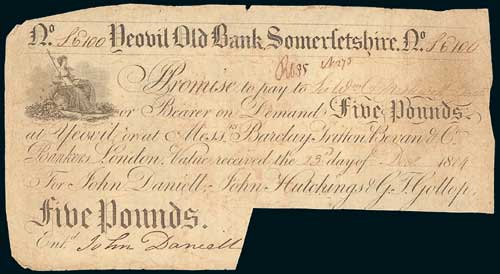 No. S6100 Yeovil Old Bank, Somersetshire. No. S6100
I Promise to pay to
or Bearer on Demand Five Pounds.
at Yeovil, or at Messrs. Barclay, Tritton, Bevan & Co.
Bankers London. Value received the 13 day of 18
For John Daniell, John Hutchings & G. T. Gollop.
Five Pounds.
Entd. John Daniell